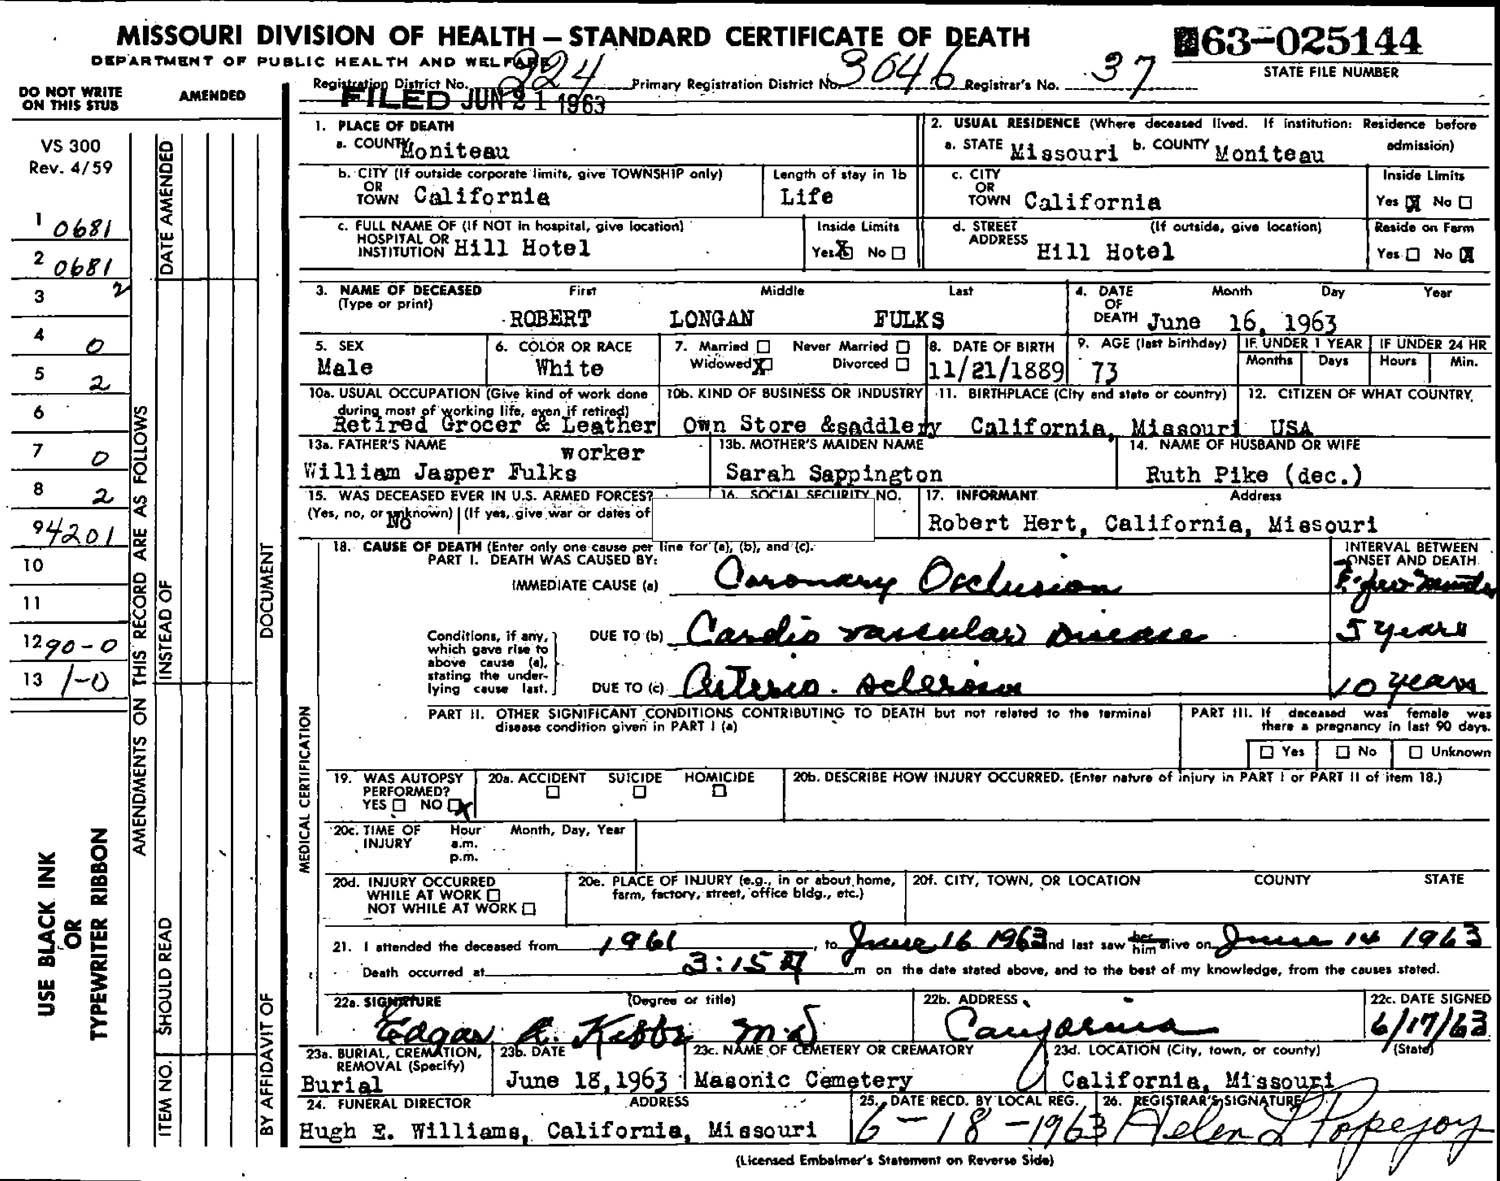 MISSOURI DIVISION OF HEALTH — STANDARD CERTIFICATE OF DEATH
63-025144
DEPARTMENT OF PUBLIC HEALTH AND WELFARE
STATE FILE NUMBER
Registration District No. 224 Primary Registration District No. 3046 Registrar's No. 37
FILED JUN 21 1963
DO NOT WRITE ON THIS STUB
AMENDED
VS 300
Rev. 4/59
1 0681
2 0681
3 2
4 0
5 2
6
7 0
8 2
9 4201
10
11
12 90-0
13 1-0
USE BLACK INK
OR
TYPEWRITER RIBBON
AMENDMENTS ON THIS RECORD ARE AS FOLLOWS
DATE AMENDED
INSTEAD OF
SHOULD READ
ITEM NO.
DOCUMENT
BY AFFIDAVIT OF
MEDICAL CERTIFICATION
1. PLACE OF DEATH
a. COUNTY Moniteau
2. USUAL RESIDENCE (Where deceased lived. If institution: Residence before admission)
a. STATE Missouri b. COUNTY Moniteau
b. CITY (If outside corporate limits, give TOWNSHIP only) OR TOWN California
Length of stay in 1b Life
c. CITY OR TOWN California
Inside Limits Yes X No
c. FULL NAME OF (IF NOT in hospital, give location) HOSPITAL OR INSTITUTION Hill Hotel
Inside Limits Yes X No
d. STREET ADDRESS (If outside, give location) Hill Hotel
Reside on Farm Yes No X
3. NAME OF DECEASED (Type or print) First Middle Last
ROBERT LONGAN FULKS
4. DATE OF DEATH Month Day Year
June 16, 1963
5. SEX Male
6. COLOR OR RACE White
7. Married Never Married
Widowed X Divorced
8. DATE OF BIRTH 11/21/1889
9. AGE (last birthday) 73
IF UNDER 1 YEAR Months Days
IF UNDER 24 HR Hours Min.
10a. USUAL OCCUPATION (Give kind of work done during most of working life, even if retired)
Retired Grocer & Leather worker
10b. KIND OF BUSINESS OR INDUSTRY
Own Store &saddlery
11. BIRTHPLACE (City and state or country)
California, Missouri
12. CITIZEN OF WHAT COUNTRY
USA
13a. FATHER'S NAME
William Jasper Fulks
13b. MOTHER'S MAIDEN NAME
Sarah Sappington
14. NAME OF HUSBAND OR WIFE
Ruth Pike (dec.)
15. WAS DECEASED EVER IN U.S. ARMED FORCES?
(Yes, no, or unknown) (If yes, give war or dates of
No
16. SOCIAL SECURITY NO.
17. INFORMANT Address
Robert Hert, California, Missouri
18. CAUSE OF DEATH (Enter only one cause per line for (a), (b), and (c).
PART I. DEATH WAS CAUSED BY:
INTERVAL BETWEEN ONSET AND DEATH
IMMEDIATE CAUSE (a) Coronary Occlusion few minutes
Conditions, if any, which gave rise to above cause (a), stating the underlying cause last.
DUE TO (b) Cardio vascular Disease 5 years
DUE TO (c) Arterio-sclerosis 10 years
PART II. OTHER SIGNIFICANT CONDITIONS CONTRIBUTING TO DEATH but not related to the terminal disease condition given in PART I (a)
PART III. If deceased was female was there a pregnancy in last 90 days.
Yes No Unknown
19. WAS AUTOPSY PERFORMED? YES NO X
20a. ACCIDENT SUICIDE HOMICIDE
20b. DESCRIBE HOW INJURY OCCURRED. (Enter nature of injury in PART I or PART II of item 18.)
20c. TIME OF INJURY Hour a.m. p.m. Month, Day, Year
20d. INJURY OCCURRED
WHILE AT WORK
NOT WHILE AT WORK
20e. PLACE OF INJURY (e.g., in or about home, farm, factory, street, office bldg., etc.)
20f. CITY, TOWN, OR LOCATION COUNTY STATE
21. I attended the deceased from 1961, to June 16 1963 and last saw her him alive on June 14 1963
Death occurred at 3:15 m on the date stated above, and to the best of my knowledge, from the causes stated.
22a. SIGNATURE (Degree or title)
Edgar R. Kibbe M D
22b. ADDRESS
California
22c. DATE SIGNED
6/17/63
23a. BURIAL, CREMATION, REMOVAL (Specify)
Burial
23b. DATE
June 18, 1963
23c. NAME OF CEMETERY OR CREMATORY
Masonic Cemetery
23d. LOCATION (City, town, or county) (State)
California, Missouri
24. FUNERAL DIRECTOR ADDRESS
Hugh E. Williams, California, Missouri
25. DATE RECD. BY LOCAL REG.
6-18-1963
26. REGISTRAR'S SIGNATURE
Helen L Popejoy
(Licensed Embalmer's Statement on Reverse Side)